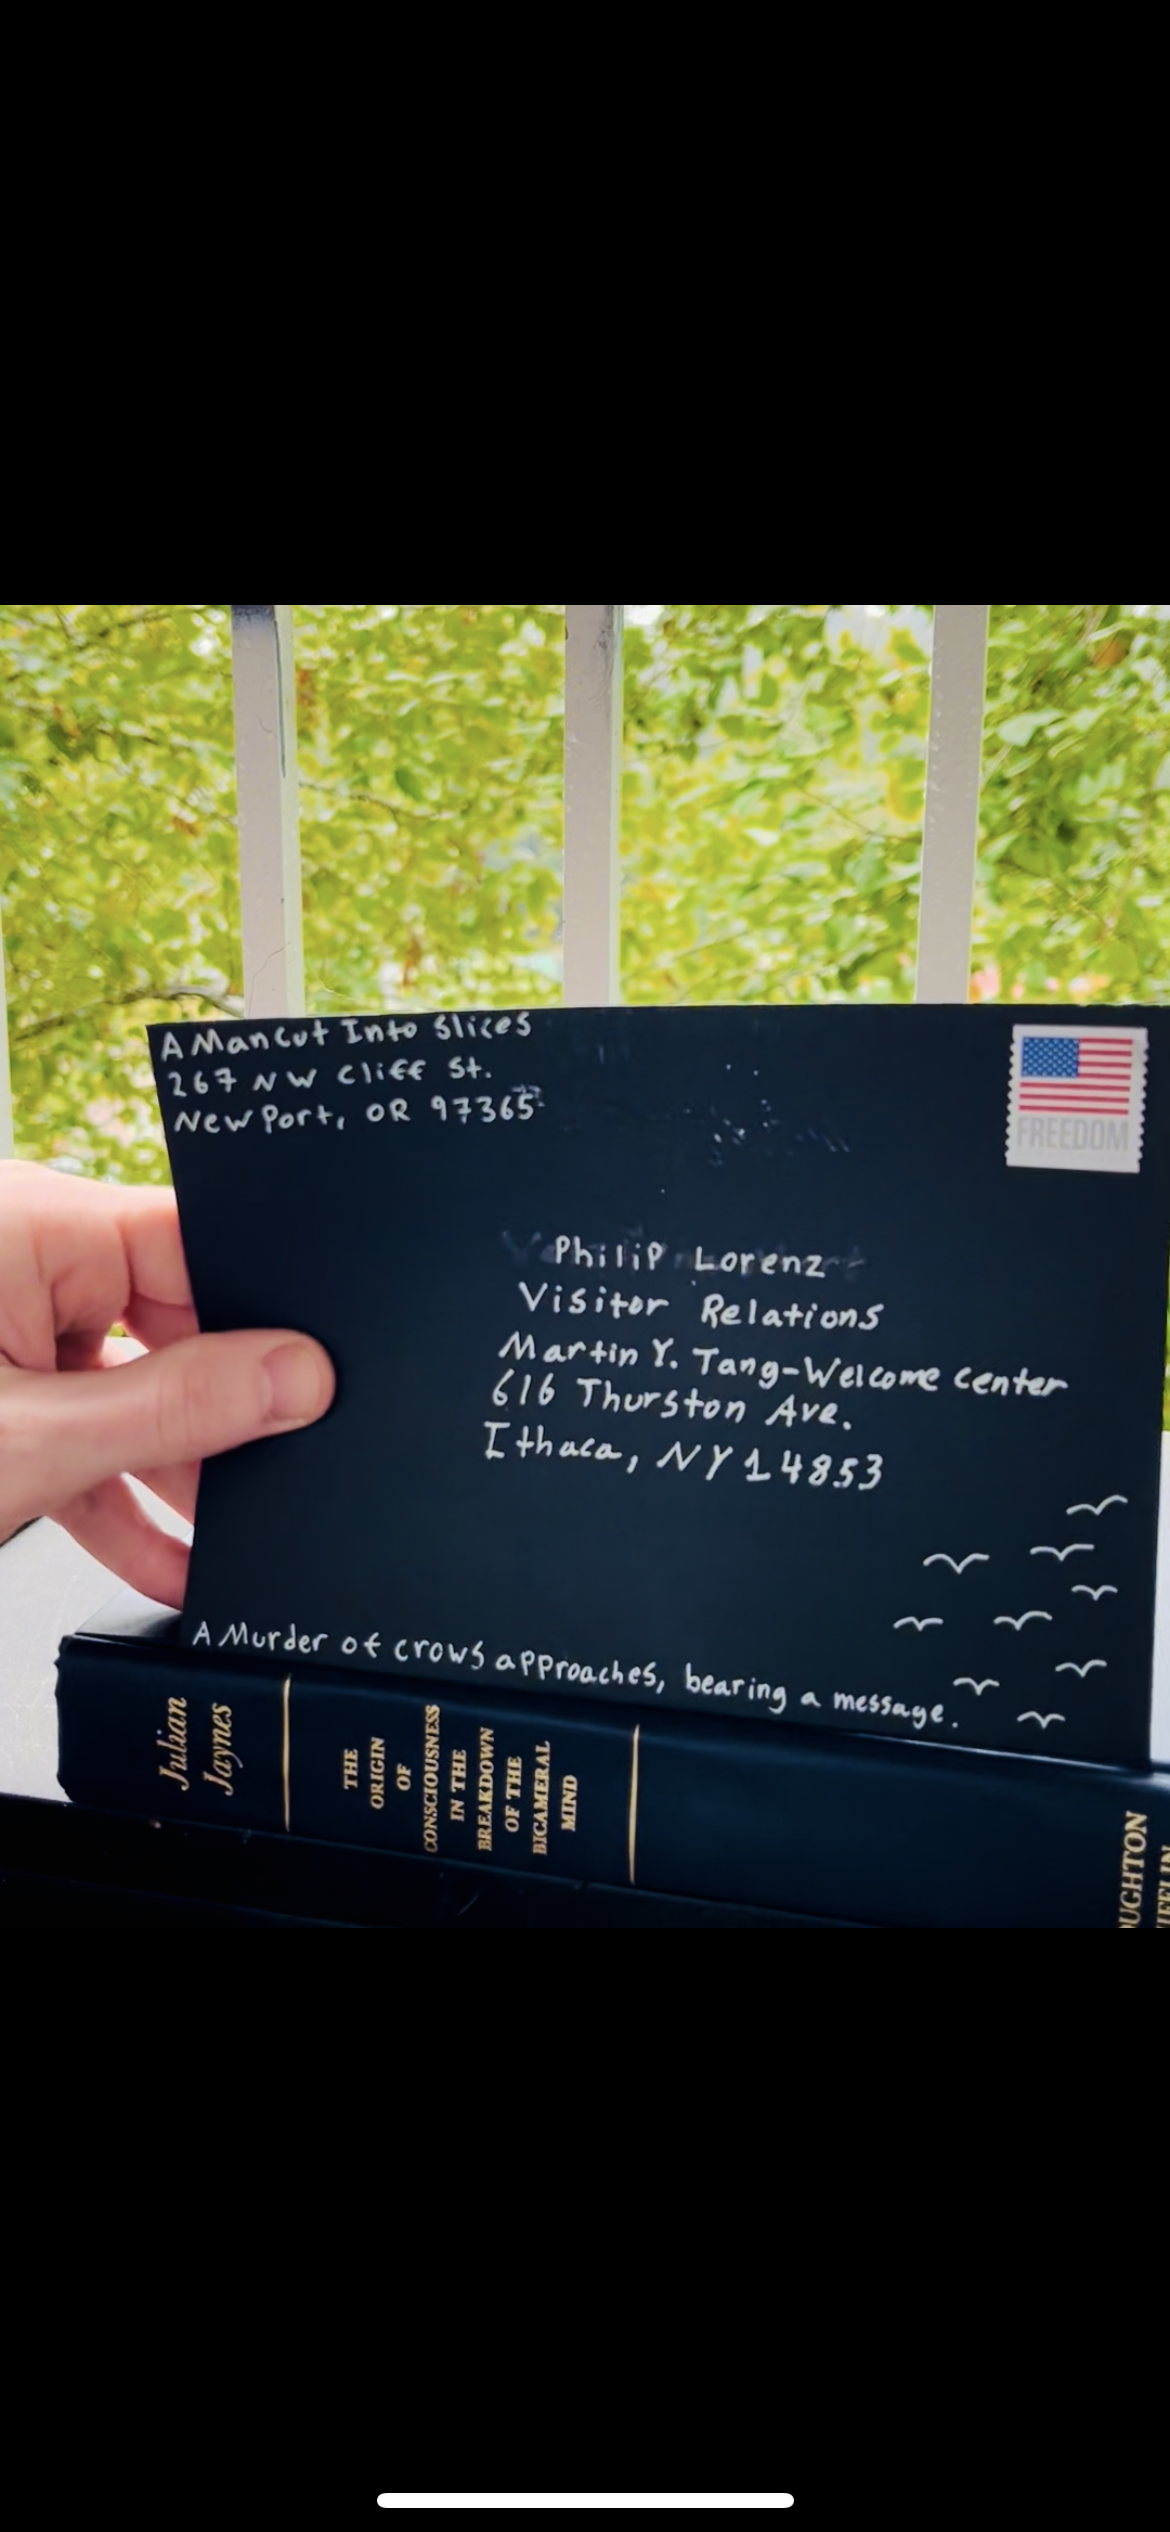 A Man Cut Into Slices
267 NW Cliff St.
NewPort, OR 97365
FREEDOM
Philip Lorenz
Visitor Relations
Martin Y. Tang-Welcome center
616 Thurston Ave.
Ithaca, NY 14853
A Murder of crows approaches, bearing a message.
Julian
Jaynes
THE
ORIGIN
OF
CONSCIOUSNESS
IN THE
BREAKDOWN
OF THE
BICAMERAL
MIND